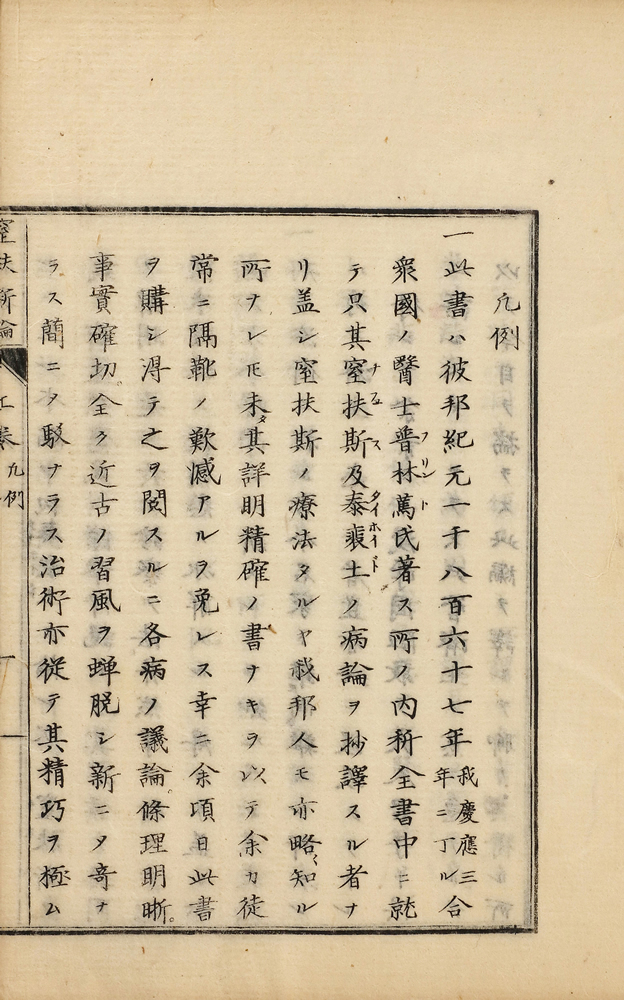 凡例
一此書ハ彼邦紀元一千八百六十七年我慶應三年ニ丁ル合
衆國ノ醫士普林篤氏著ス所ノ內科全書中ニ就
テ只其窒扶斯及泰裴土ノ病論ヲ抄譯スル者ナ
リ盖シ窒扶斯ノ療法タルヤ我邦人モ亦略、知ル
所ナレ𪜈未タ其詳明精確ノ書ナキヲ以テ余カ徒
常ニ隔靴ノ歎憾アルヲ免レス幸ニ余項日此書
ヲ購シ得テ之ヲ閲スルニ各病ノ議論條理明晰。
事實確切。全ク近古ノ習風ヲ蟬脫シ新ニメ奇ナ
ラス簡ニメ駁ナラス治術亦從テ其精巧ヲ極ム
窒扶斯論
上卷
凡例